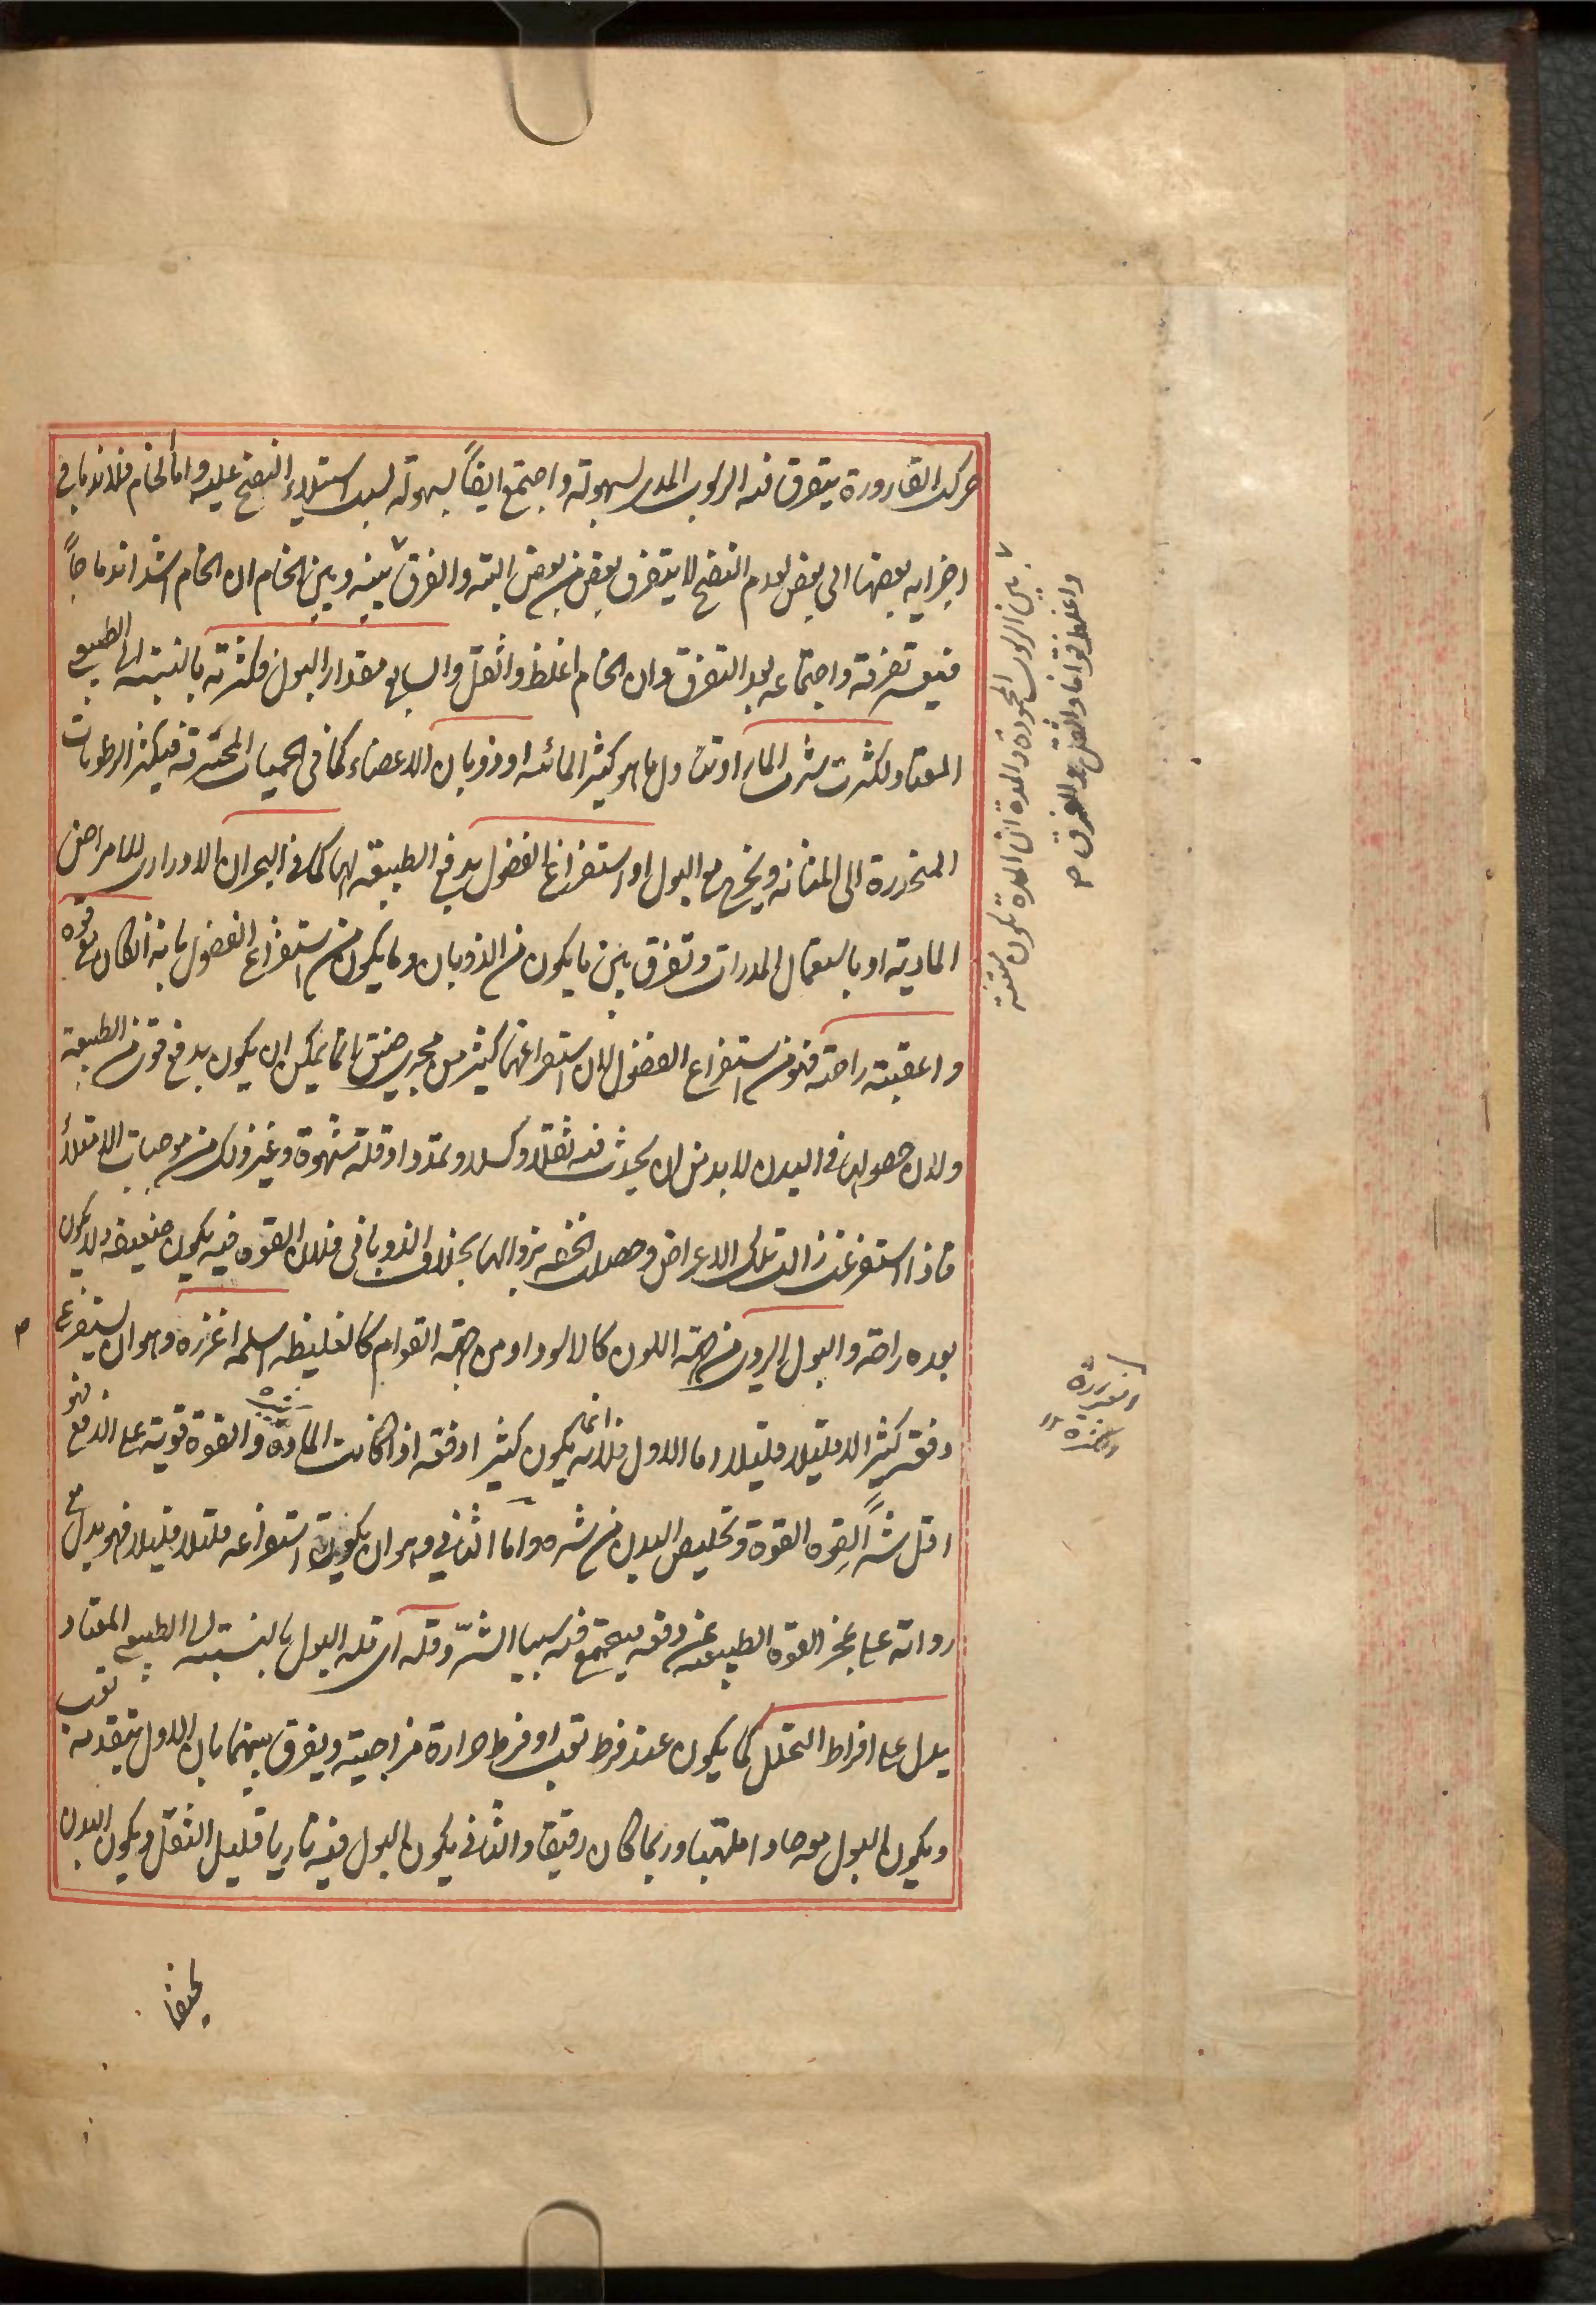 حركت القارورة يتفرق فيه الرسوب المدى لسهولة واجتمع ايضاً بسهولة لسبب استيلاء النضج عليه واما الخام فلاندماج
اجزايه بعضها الى بعض لعدم النضج لا يتفرق بعض من بعض البتة والفرق بينه وبين الخام ان الخام اشد اندماجاً
فيعسر تفرقه واجتماعه بعد التفرق وان الخام اغلظ واثقل والسابع مقدار البول وكثرته بالنسبة الى الطبيعي
المعتاد لكثرت شرب الماء او تناول ما هو كثير المائية او ذوبان الاعضاء كما فى الحميات المحترقة فيكثر الرطوبات
المنحدرة الى المثانه ويخرج مع البول او استفراغ الفضول بدفع الطبيعة لها كما فى البحران الادرارى للامراض
المادية او باستعمال المدرات وتفرق بين ما يكون من الذوبان وما يكون من استفراغ الفضول بانه ان كان معه قوة
واعقبته راحة فهو من استفراغ الفضول لان استفراغها كثير من مجرى ضيق انما يمكن ان يكون بدفع قوى من الطبيعة
ولان حصولها فى البدن لا بد من ان يحدث فيه ثقلا وكسلا وتمددا وقلة شهوة وغير ذلك من موجبات الامتلاء
فاذا استفرغت زالت تلك الاعراض وحصلت الخفة بزوالها بخلاف الذوبانى فلان القوة فيه يكون ضعيفة ولا يكون
بعده راحة والبول الردى من جهة اللون كالاسود او من جهة القوام كالغليظ اسلمه اغزره وهو ان يستفرغ
دفعة كثير لا قليلا قليلا اما الاول فلانه انما يكون كثيرا دفعة اذا كانت المادة والقوة قوية على الدفع فهو
اقل شراً لقوة القوة وتخليص البدن من شره واما الثانى وهو ان يكون استفراغه قليلا قليلا فهو يدل مع
ردائته على عجز القوة الطبيعية عن دفعه فيجتمع فيه سببا الشر وقلته اى قلة البول بالنسبة الى الطبيعى المعتاد
يدل على افراط التحلل كما يكون عند فرط تعب او فرط حرارة مزاجية ويفرق بينهما بان الاول يتقدمه تعب
ويكون البول معه حادا ملتهبا وربما كان رقيقا والثانى يكون البول فيه ناريا قليل الثفل ويكون البدن
بين الرسوب المحمودة والمدة ان المدة تكون منتنة
واغلظ قواما واثقل والفرق